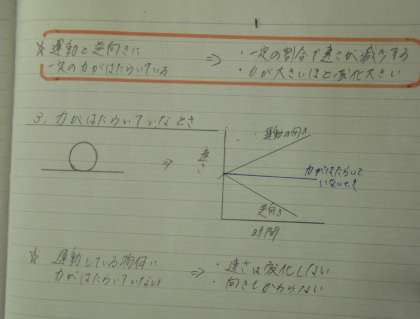 ※ 運動と逆向きに
一定の力がはたらいている
⇒ ・一定の割合で速さが減少する
・力が大きいほど変化大きい
3. 力がはたらいていないとき
⇒
速さ
運動の向き
力がはたらいて
いないとき
逆向き
時間
※ 運動している物体に
力がはたらいていない
⇒ ・速さは変化しない
・向きもかわらない